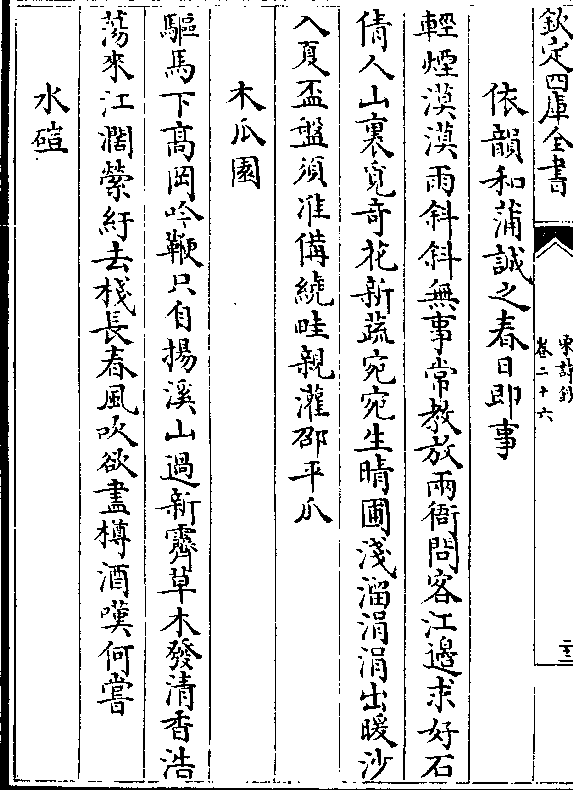 欽定四庫全書
宋詩鈔
卷二十六
二十三
依韻和蒲誠之春日即事
輕煙漠漠雨斜斜無事常教放兩衙問客江邊求好石
倩人山裏覓奇花新蔬宛宛生晴圃淺溜涓涓出暖沙
入夏盃盤須准備繞畦親灌邵平瓜
木瓜園
驅馬下高岡吟鞭只自揚溪山過新霽草木發清香浩
蕩來江濶縈紆去棧長春風吹欲盡樽酒嘆何嘗
水磑